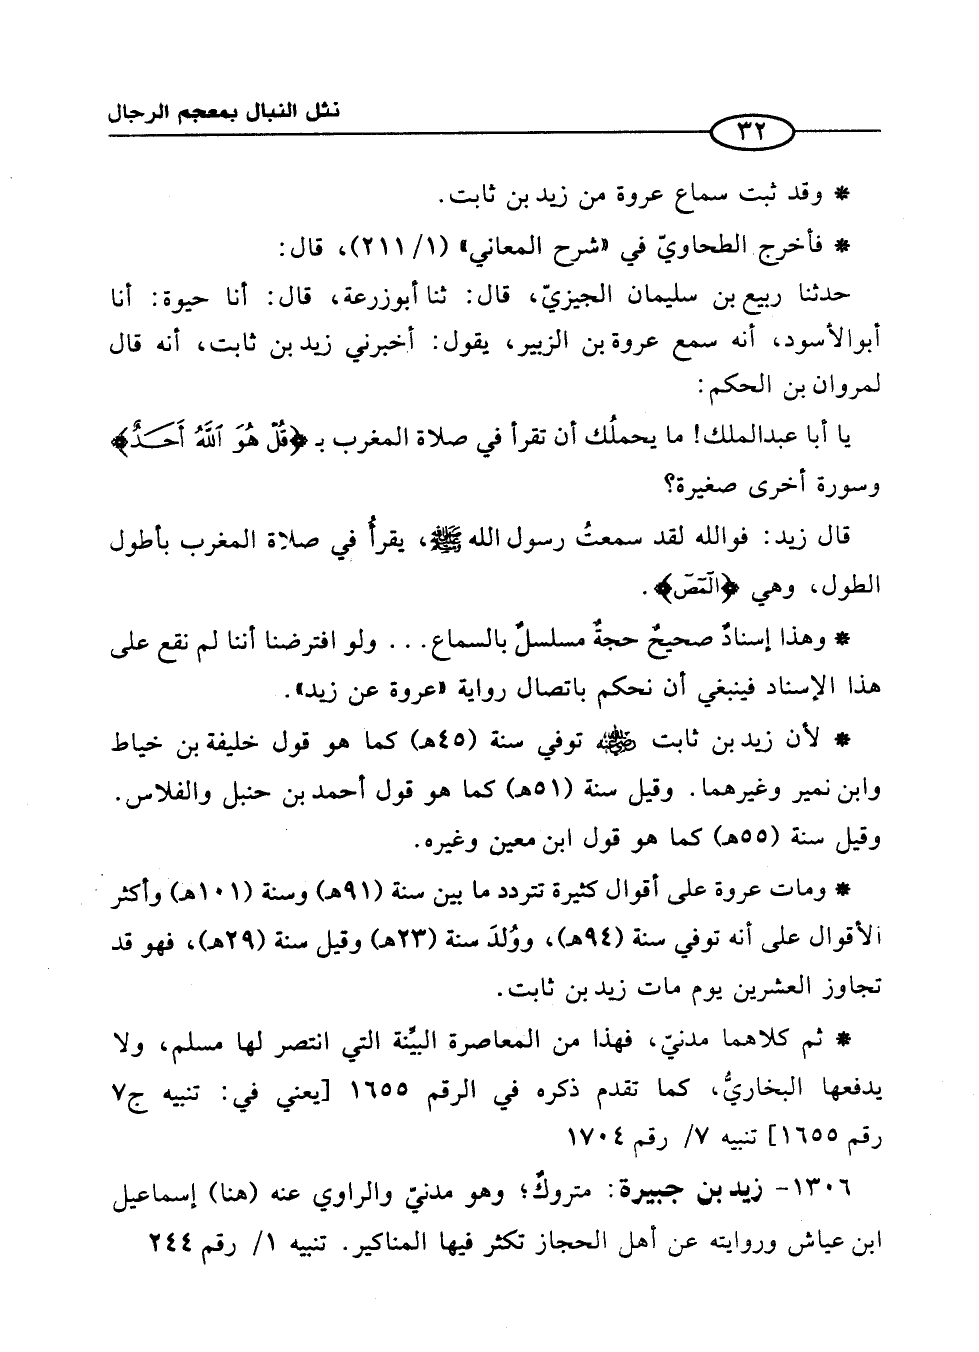 نثل النبال بمعجم الرجال
٣٢
* وقد ثبت سماع عروة من زيد بن ثابت.
* فأخرج الطحاويّ في «شرح المعاني» (١/ ٢١١)، قال:
حدثنا ربيع بن سليمان الجيزيّ، قال: ثنا أبوزرعة، قال: أنا حيوة: أنا
أبوالأسود، أنه سمع عروة بن الزبير، يقول: أخبرني زيد بن ثابت، أنه قال
لمروان بن الحكم:
يا أبا عبدالملك! ما يحملُك أن تقرأ في صلاة المغرب بـ ﴿قُلْ هُوَ ٱللَّهُ أَحَدٌ﴾
وسورة أخرى صغيرة؟
قال زيد: فوالله لقد سمعتُ رسول الله ﷺ، يقرأُ في صلاة المغرب بأطول
الطول، وهي ﴿الٓمٓصٓ﴾.
* وهذا إسنادٌ صحيحٌ حجةٌ مسلسلٌ بالسماع... ولو افترضنا أننا لم نقع على
هذا الإسناد فينبغي أن نحكم باتصال رواية «عروة عن زيد».
* لأن زيد بن ثابت رضي الله عنه توفي سنة (٤٥هـ) كما هو قول خليفة بن خياط
وابن نمير وغيرهما. وقيل سنة (٥١هـ) كما هو قول أحمد بن حنبل والفلاس.
وقيل سنة (٥٥هـ) كما هو قول ابن معين وغيره.
* ومات عروة على أقوال كثيرة تتردد ما بين سنة (٩١هـ) وسنة (١٠١هـ) وأكثر
الأقوال على أنه توفي سنة (٩٤هـ)، ووُلدَ سنة (٢٣هـ) وقيل سنة (٢٩هـ)، فهو قد
تجاوز العشرين يوم مات زيد بن ثابت.
* ثم كلاهما مدنيّ، فهذا من المعاصرة البيِّنة التي انتصر لها مسلم، ولا
يدفعها البخاريُّ، كما تقدم ذكره في الرقم ١٦٥٥ [يعني في: تنبيه ج٧
رقم ١٦٥٥] تنبيه ٧/ رقم ١٧٠٤
١٣٠٦- زيد بن جبيرة: متروكٌ؛ وهو مدنيّ والراوي عنه (هنا) إسماعيل
ابن عياش وروايته عن أهل الحجاز تكثر فيها المناكير. تنبيه ١/ رقم ٢٤٤